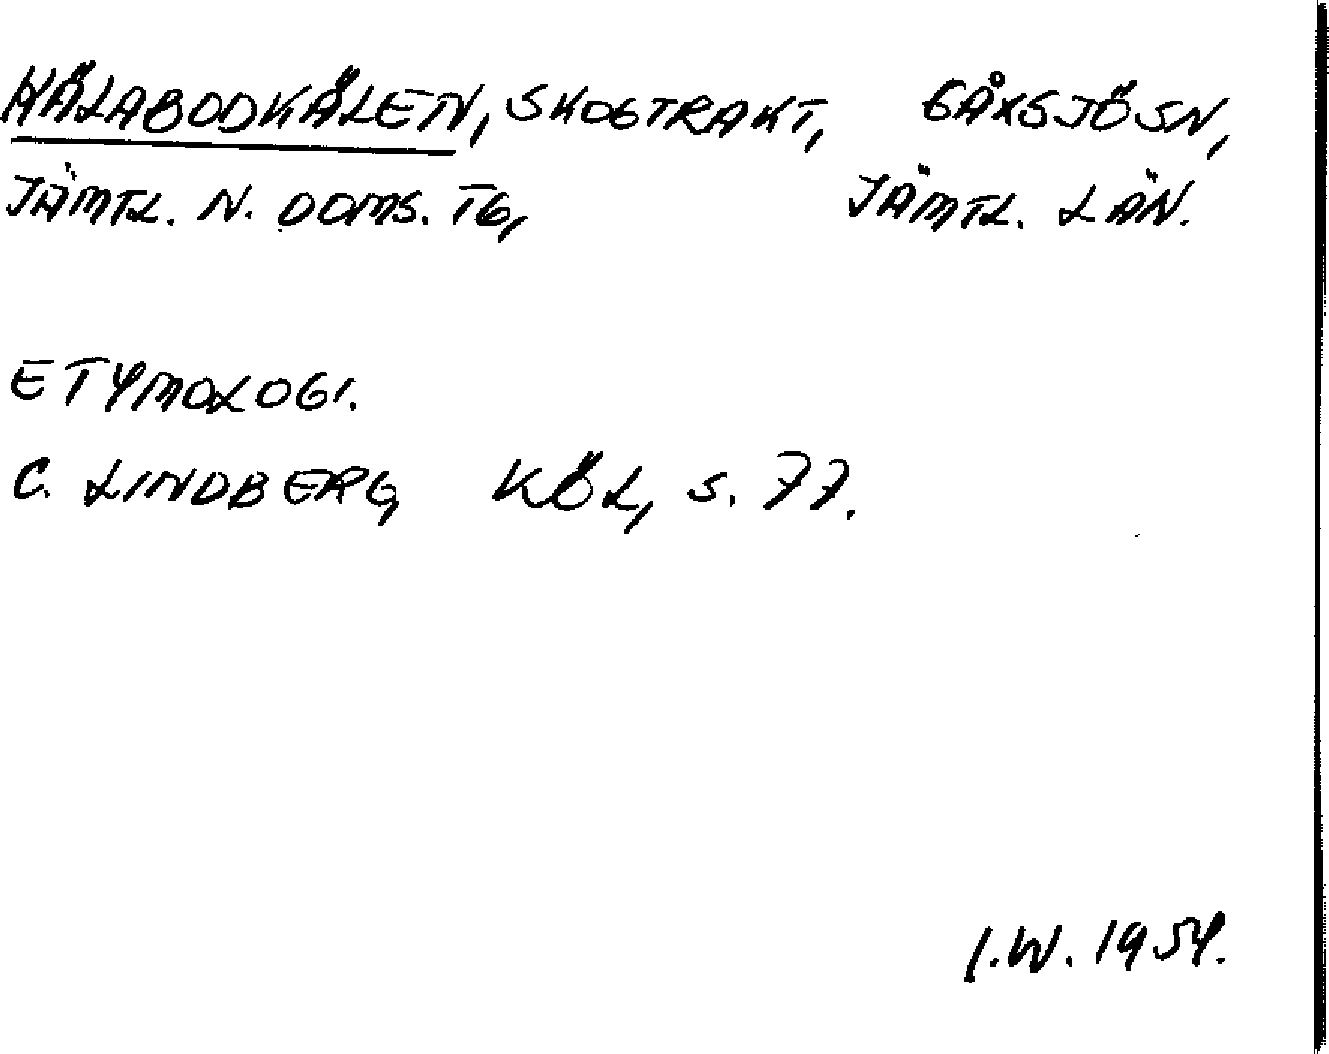 HÄLABODKÄLEN, SKOGTRAKT, GÅXSJÖ SN,
JÄMTL. N. DOMS. TG, JÄMTL. LÄN.
ETYMOLOGI.
C. LINDBERG, KÖL, S. 77.
I.W. 1954.